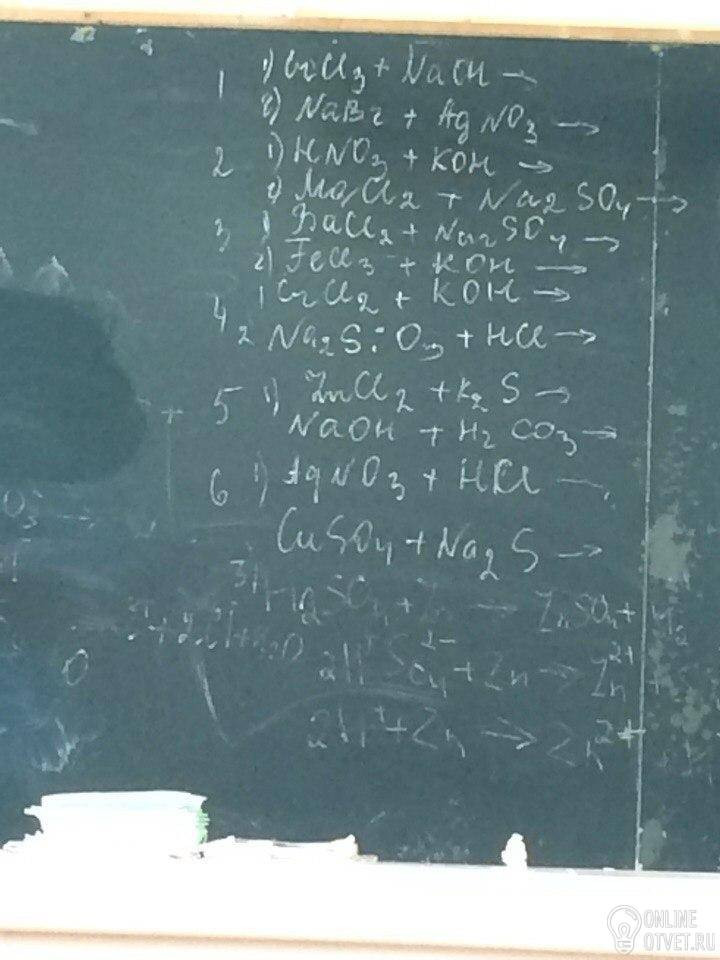 1 1) CrCl3 + NaOH →
2) NaBr + AgNO3 →
2 1) HNO3 + KOH →
2) MgCl2 + Na2SO4 →
3 1) BaCl2 + Na2SO4 →
2) FeCl3 + KOH →
4 1) CrCl2 + KOH →
2 Na2SiO3 + HCl →
5 1) ZnCl2 + K2S →
NaOH + H2CO3 →
6 1) AgNO3 + HCl →
CuSO4 + Na2S →
3) H2SO4 + Zn → ZnSO4 + H2
2H+ SO4 2- + Zn → Zn 2+ +
2H+ + Zn → Zn 2+
ONLINE
OTVET.RU